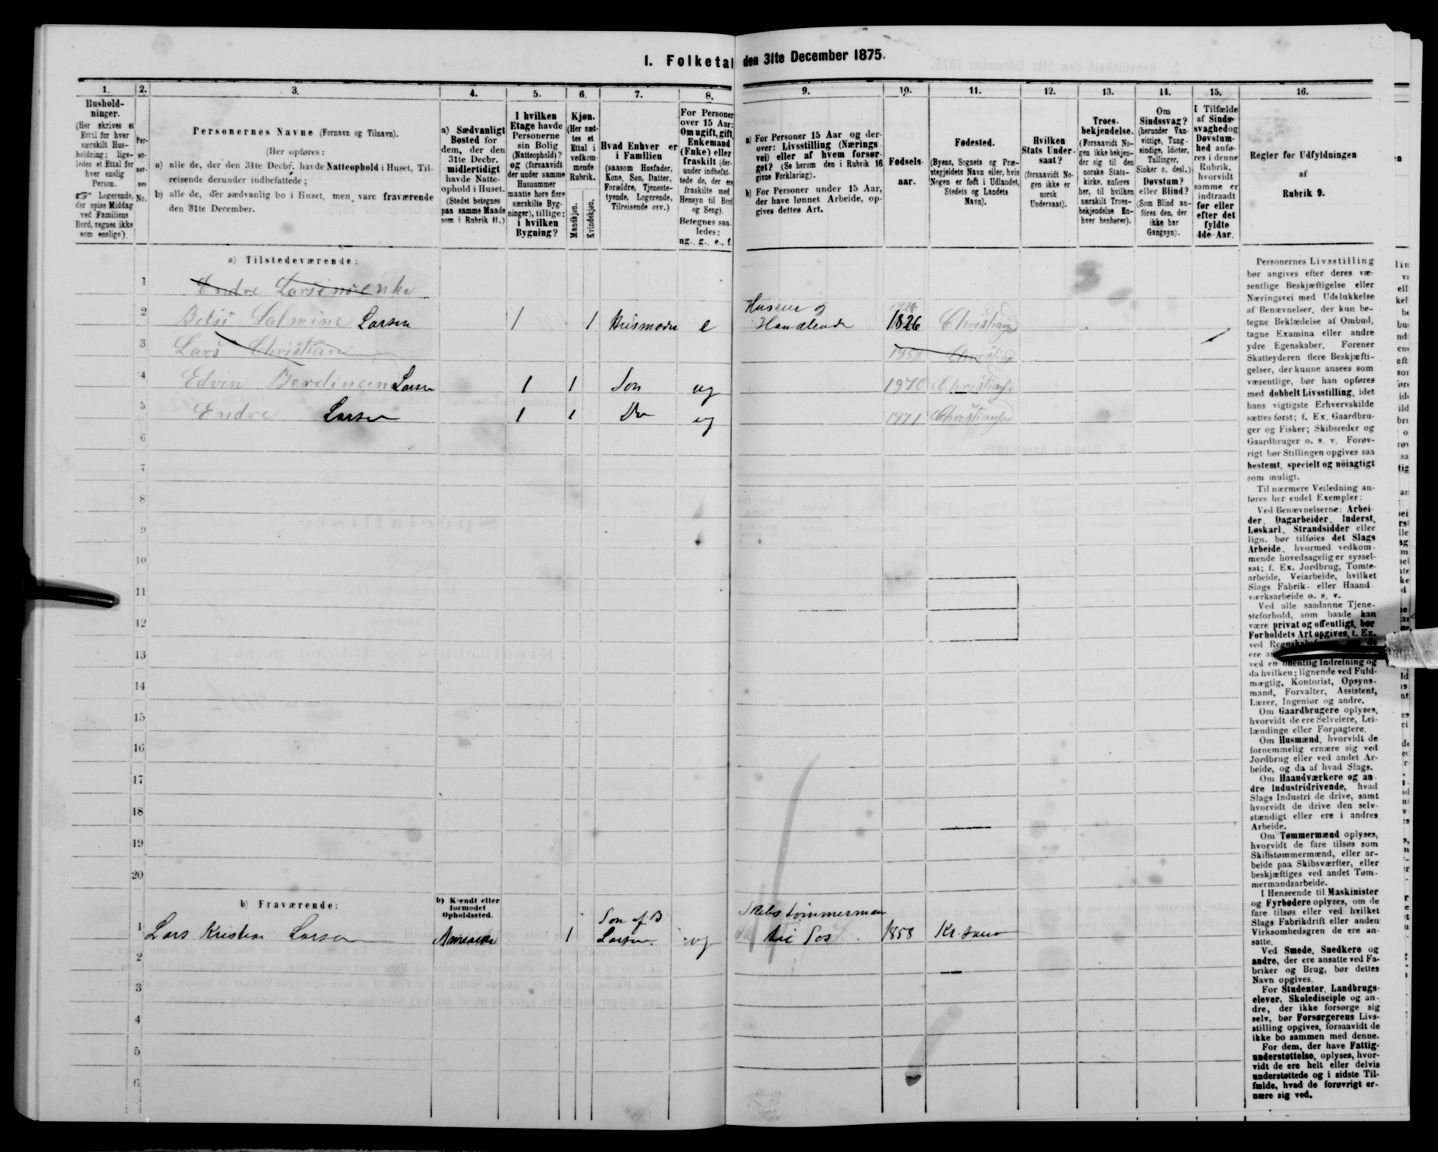 I. Folketal den 31te December 1875.
1. 2. 3. 4. 5. 6. 7. 8. 9. 10. 11. 12. 13. 14. 15. 16.
Hushold-
ninger.
(Her skrives et
Ettal for hver
særskilt Hus-
holdning; lige-
ledes et Ettal for
hver enslig
Person.
☞ Logerende,
der spise Middag
ved Familiens
Bord, regnes ikke
som enslige).
Per-
so-
ner-
nes
No.
Personernes Navne (Fornavn og Tilnavn).
(Her opføres:
a) alle de, der den 31te Decbr. havde Natteophold i Huset, Til-
reisende derunder indbefattede;
b) alle de, der sædvanlig bo i Huset, men vare fraværende
den 31te December.
a) Sædvanligt
Bosted for
dem, der den
31te Decbr.
midlertidigt
havde Natte-
ophold i Huset.
(Stedet betegnes
paa samme Maade
som i Rubrik 11.)
I hvilken
Etage havde
Personerne
sin Bolig
(Natteophold)?
og (forsaavidt
der under samme
Husnummer
maatte høre flere
særskilte Byg-
ninger), tillige:
i hvilken
Bygning?
Kjøn.
(Her sæt-
tes et
Ettal i
vedkom-
mende
Rubrik.
Mandkjøn.
Kvindekjøn.
Hvad Enhver er
i Familien
(saasom Husfader,
Kone, Søn, Datter,
Forældre, Tjeneste-
tyende, Logerende,
Tilreisende osv.)
For Personer
over 15 Aar:
Om ugift, gift,
Enkemand
(Enke) eller
fraskilt (der-
under indbefat-
tede de, der ere
fraskilte med
Hensyn til Bord
og Seng).
Betegnes saa-
ledes:
ug., g., e., f.
a) For Personer 15 Aar og der-
over: Livsstilling (Nærings-
vei) eller af hvem forsør-
get? (Se herom den i Rubrik 16
givne Forklaring).
b) For Personer under 15 Aar,
der have lønnet Arbeide, op-
gives dettes Art.
Fødsels-
aar.
Fødested.
(Byens, Sognets og Præ-
stegjeldets Navn eller, hvis
Nogen er født i Udlandet,
Stedets og Landets
Navn).
Hvilken
Stats Under-
saat?
(forsaavidt No-
gen ikke er
norsk
Undersaat).
Troes-
bekjendelse.
(Forsaavidt No-
gen ikke bekjen-
der sig til den
norske Stats-
kirke, anføres
her, til hvilken
særskilt Troes-
bekjendelse En-
hver henhører).
Om
Sindssvag?
(herunder Van-
vittige, Tung-
sindige, Idioter,
Tullinger,
Sinker o. desl.)
Døvstum?
eller Blind?
(Som Blind an-
føres den, der
ikke har
Gangsyn).
I Tilfælde
af Sinds-
svaghed og
Døvstum-
hed anfø-
res i denne
Rubrik,
hvorvidt
samme er
indtraadt
før eller
efter det
fyldte
4de Aar.
Regler for Udfyldningen
af
Rubrik 9.
a) Tilstedeværende:
1 Endre Larsens Enke
2 Betsi Salmine Larsen 1 1 Husmoder e Huseier og Handlende 1826
3 Lars Christian 1858
4 Edvin Ferdinan Larsen 1 1 Søn ug 1870
5 Endre Larsen 1 1 Do ug 1871
6
7
8
9
10
11
12
13
14
15
16
17
18
19
20
b) Fraværende:
b) Kjendt eller
formodet
Opholdssted.
1 Lars Kristian Larsen Amerika 1 Søn af B Larsen ug Skibstømmermand til Søs 1858 Kr.sand
2
3
4
5
6
Personernes Livsstilling
bør angives efter deres væ-
sentlige Beskjæftigelse eller
Næringsvei med Udelukkelse
af Benævnelser, der kun be-
tegne Beklædelse af Ombud,
tagne Examina eller andre
ydre Egenskaber. Forener
Skatteyderen flere Beskjæfti-
gelser, der kunne ansees som
væsentlige, bør han opføres
med dobbelt Livsstilling, idet
hans vigtigste Erhvervskilde
sættes først; f. Ex. Gaardbru-
ger og Fisker; Skibsreder og
Gaardbruger o. s. v. Forøv-
rigt bør Stillingen opgives saa
bestemt, specielt og nøiagtigt
som muligt.
Til nærmere Veiledning an-
føres her endel Exempler:
Ved Benævnelserne: Arbei-
der, Dagarbeider, Inderst,
Løskarl, Strandsidder eller
lign. bør tilføies det Slags
Arbeide, hvormed vedkom-
mende hovedsagelig er syssel-
sat; f. Ex. Jordbrug, Tomte-
arbeide, Veiarbeide, hvilket
Slags Fabrik- eller Haand-
værksarbeide o. s. v.
Ved alle saadanne Tjene-
steforhold, som baade kan
være privat og offentligt, bør
Forholdets Art opgives, f. Ex.
ved
ved en offentlig Indretning og
da hvilken; lignende ved Fuld-
mægtig, Kontorist, Opsyns-
mand, Forvalter, Assistent,
Lærer, Ingeniør og andre.
Om Gaardbrugere oplyses,
hvorvidt de ere Selveiere, Lei-
lændinge eller Forpagtere.
Om Husmænd, hvorvidt de
fornemmelig ernære sig ved
Jordbrug eller ved andet Ar-
beide, og da af hvad Slags.
Om Haandværkere og an-
dre Industridrivende, hvad
Slags Industri de drive, samt
hvorvidt de drive den selv-
stændigt eller ere i andres
Arbeide.
Om Tømmermænd oplyses,
hvorvidt de fare tilsøs som
Skibstømmermænd, eller ar-
beide paa Skibsværfter, eller
beskjæftiges ved andet Tøm-
mermandsarbeide.
I Henseende til Maskinister
og Fyrbødere oplyses, om de
fare tilsøs eller ved hvilket
Slags Fabrikdrift eller anden
Virksomhedsgren de ere an-
satte.
Ved Smede, Snedkere og
andre, der ere ansatte ved Fa-
briker og Brug, bør dettes
Navn opgives.
For Studenter, Landbrugs-
elever, Skoledisciple og an-
dre, der ikke forsørge sig
selv, bør Forsørgerens Livs-
stilling opgives, forsaavidt de
ikke bo sammen med denne.
For dem, der have Fattig-
understøttelse, oplyses, hvor-
vidt de ere helt eller delvis
understøttede og i sidste Til-
fælde, hvad de forøvrigt er-
nære sig ved.